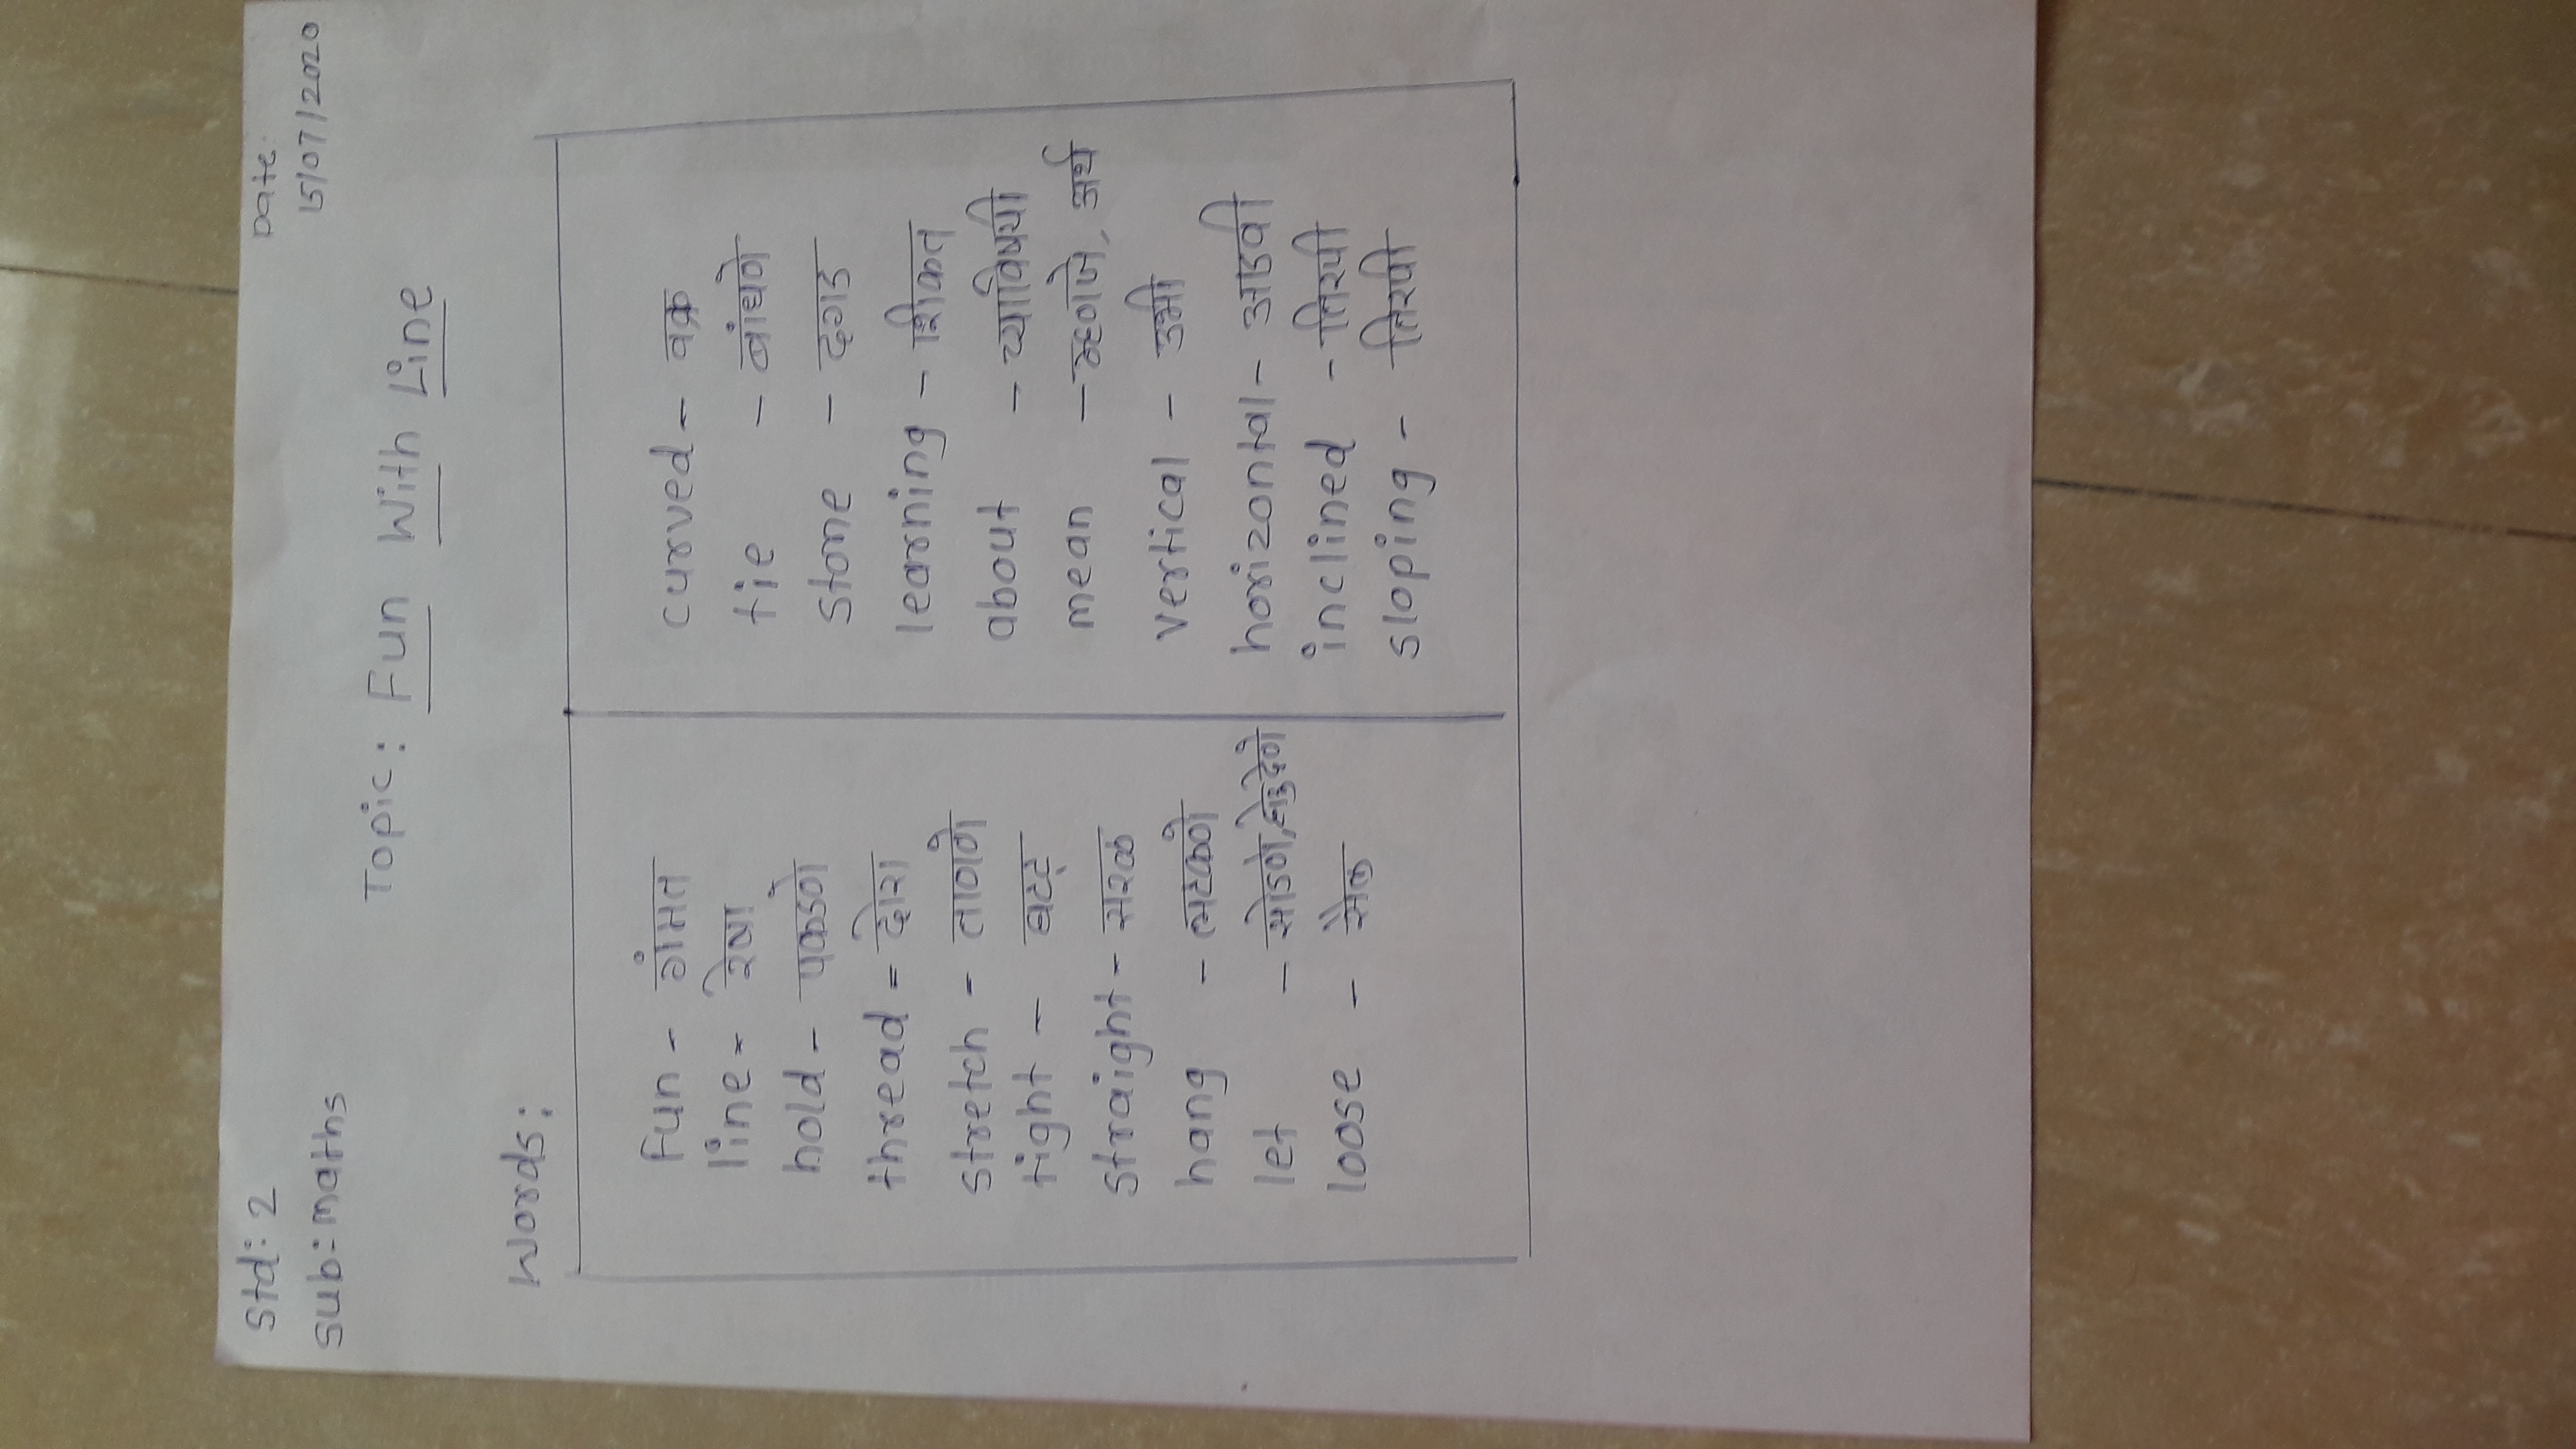 Std: 2
Date:
Sub:- maths
15/07/2020
Topic: Fun With Line
Words:
fun - गंमत
line - रेषा
hold - पकडणे
thread = दोरा
stretch - ताणणे
tight - घट्ट
straight - सरळ
hang - लटकणे
let - सोडणे,
loose - सैल
curved - वक्र
tie - बांधणे
stone - दगड
learning - शिकत
about - च्याविषयी
mean - म्हणजे, अर्थ
vertical - उभी
horizontal - आडवी
inclined - तिरपी
sloping - तिरपी